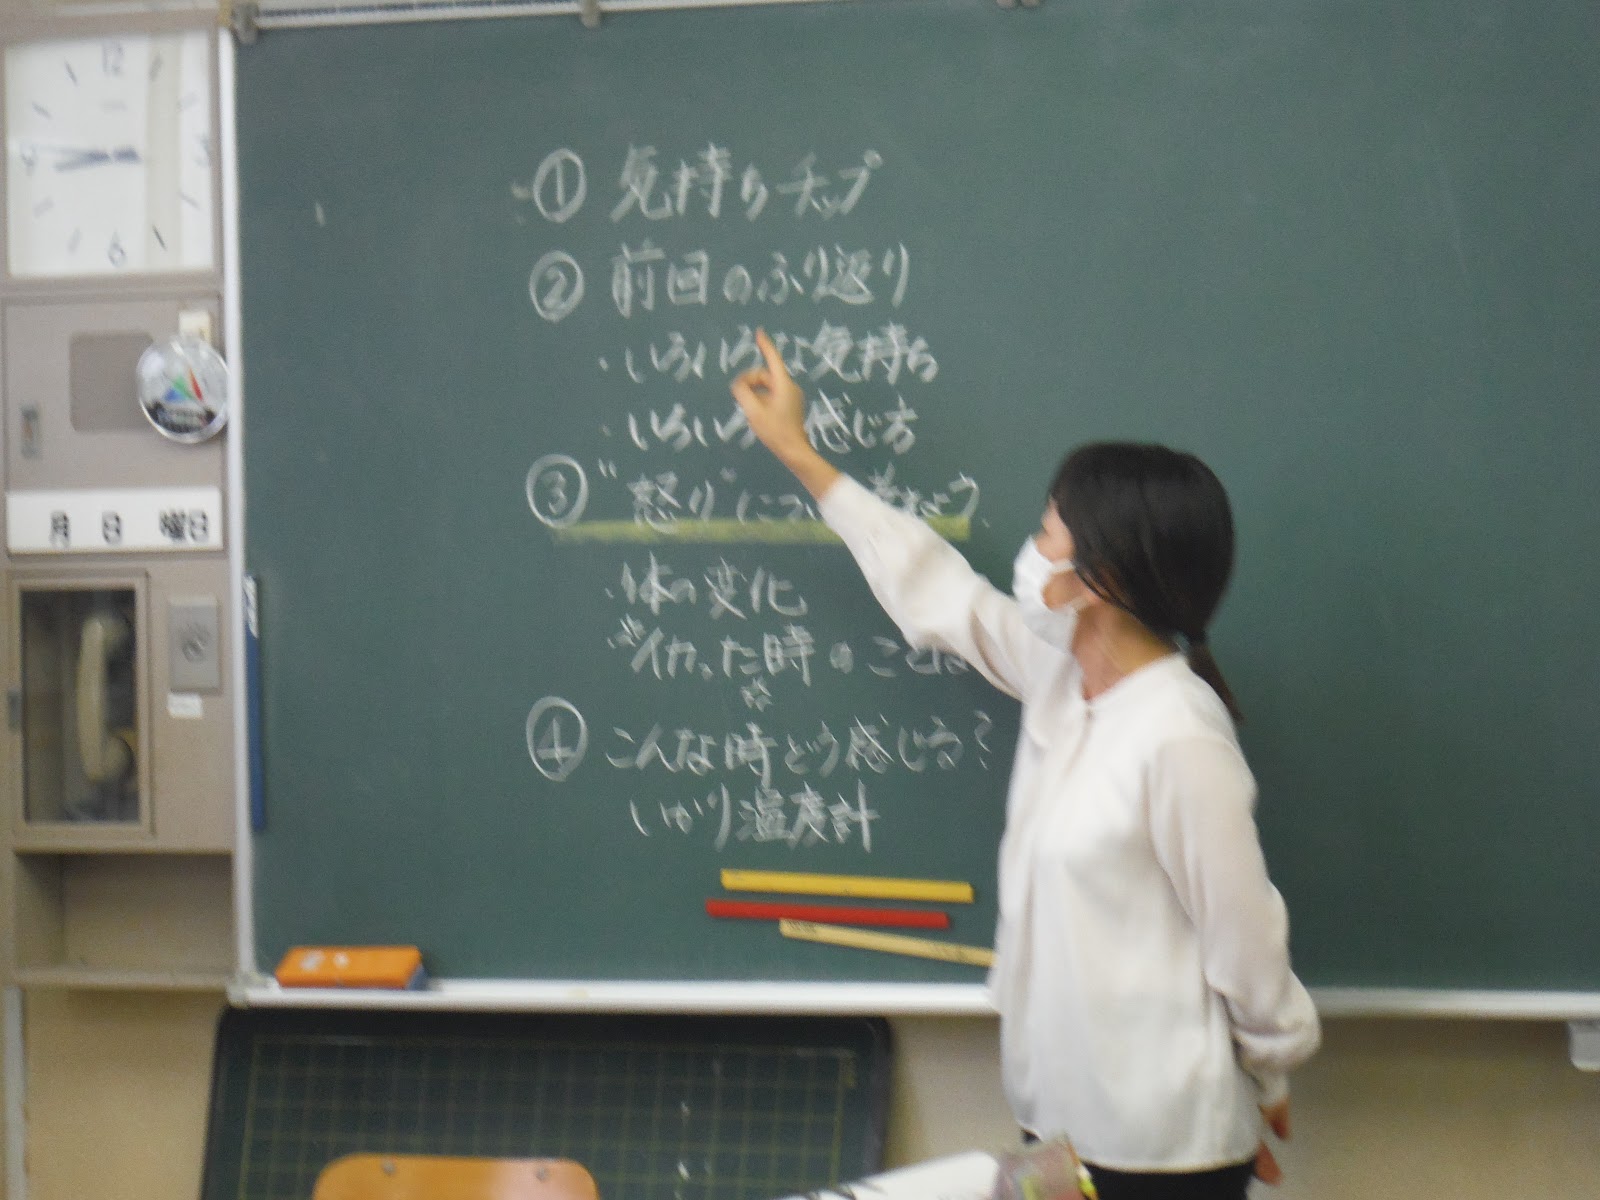 12
9
3
6
月 日 曜日
① 気持ちチップ
② 前回のふり返り
・いろいろな気持ち
・いろいろ 感じ方
③ "怒り"につい
・体の変化
※イカった時のことば
④ こんな時どう感じる?
いかり温度計